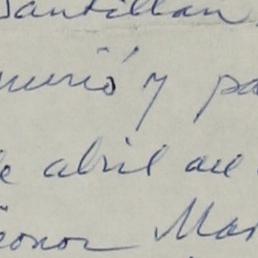 Santillan
murió y pa
de abril del
eonor Mar